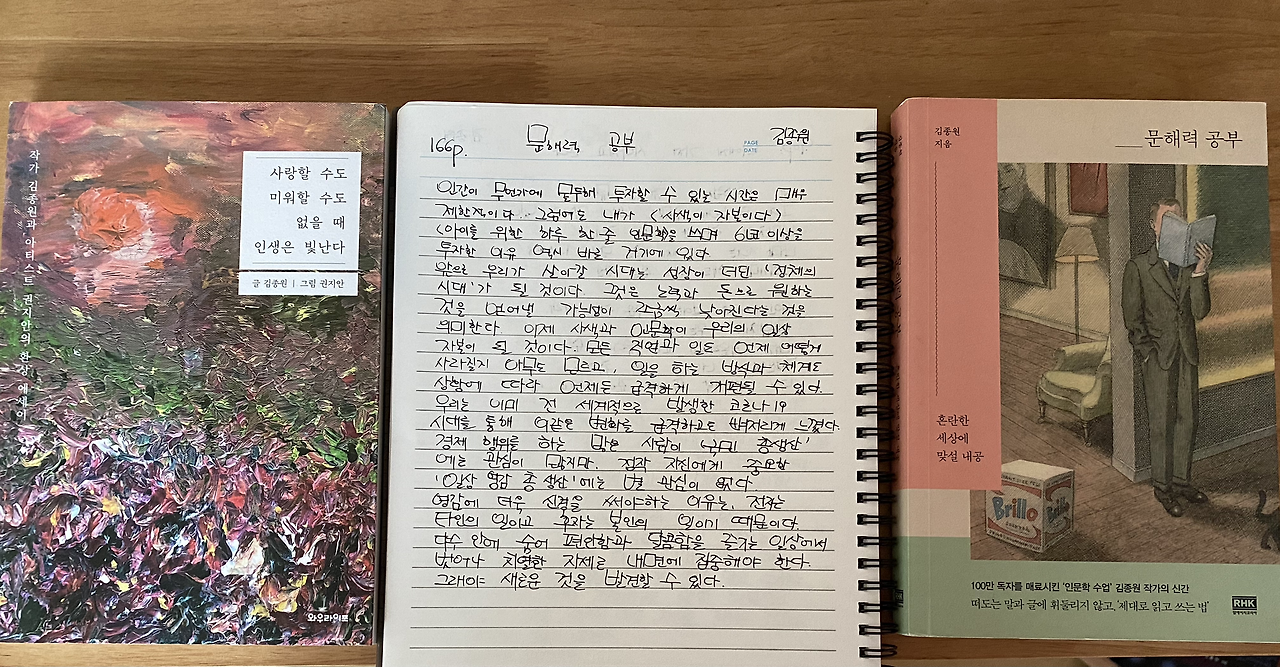 작가 김종원과 아티스트 권지안의 환상 에세이
사랑할 수도
미워할 수도
없을 때
인생은 빛난다
글 김종원 | 그림 권지안
와우라이프
166p.
문해력 공부
김종원
PAGE
DATE
인간이 무언가에 몰두해 투자할 수 있는 시간은 매우
제한적이다. 그럼에도 내가 <사색이 자본이다>
<아이를 위한 하루 한 줄 인문학>을 쓰며 이상을
투자한 이유 역시 바로 거기에 있다
앞으로 우리가 살아갈 시대는 성장이 더딘 '정체의
시대'가 될 것이다. 그것은 노력과 돈으로 원하는
것을 얻어낼 가능성이 조금씩 낮아진다는 것을
의미한다. 이제 사색과 인문학이 우리의 일상
자본이 될 것이다. 모든 직업과 일도 언제 어떻게
사라질지 아무도 모르고, 일을 하는 방식과 체계도
상황에 따라 언제든 급격하게 개편될 수 있다.
우리는 이미 전 세계적으로 발생한 코로나 19
시대를 통해 이같은 변화를 급격하고도 빠르게 느꼈다.
경제 행위를 하는 많은 사람이 '국민 총생산'
에는 관심이 많지만, 정작 자신에게 중요한
'일상 영감 총 생산'에는 별 관심이 없다
영감에 더욱 신경을 써야하는 이유는, 전자는
타인의 일이고 후자는 본인의 일이기 때문이다.
다수 안에 숨어 편안함과 달콤함을 즐기는 일상에서
벗어나 치열한 자세로 내면에 집중해야 한다.
그래야 새로운 것을 발견할 수 있다.
김종원
지음
__문해력 공부
혼란한
세상에
맞설 내공
Brillo
Brillo
100만 독자를 매료시킨 '인문학 수업' 김종원 작가의 신간
떠도는 말과 글에 휘둘리지 않고, '제대로 읽고 쓰는 법'
RHK